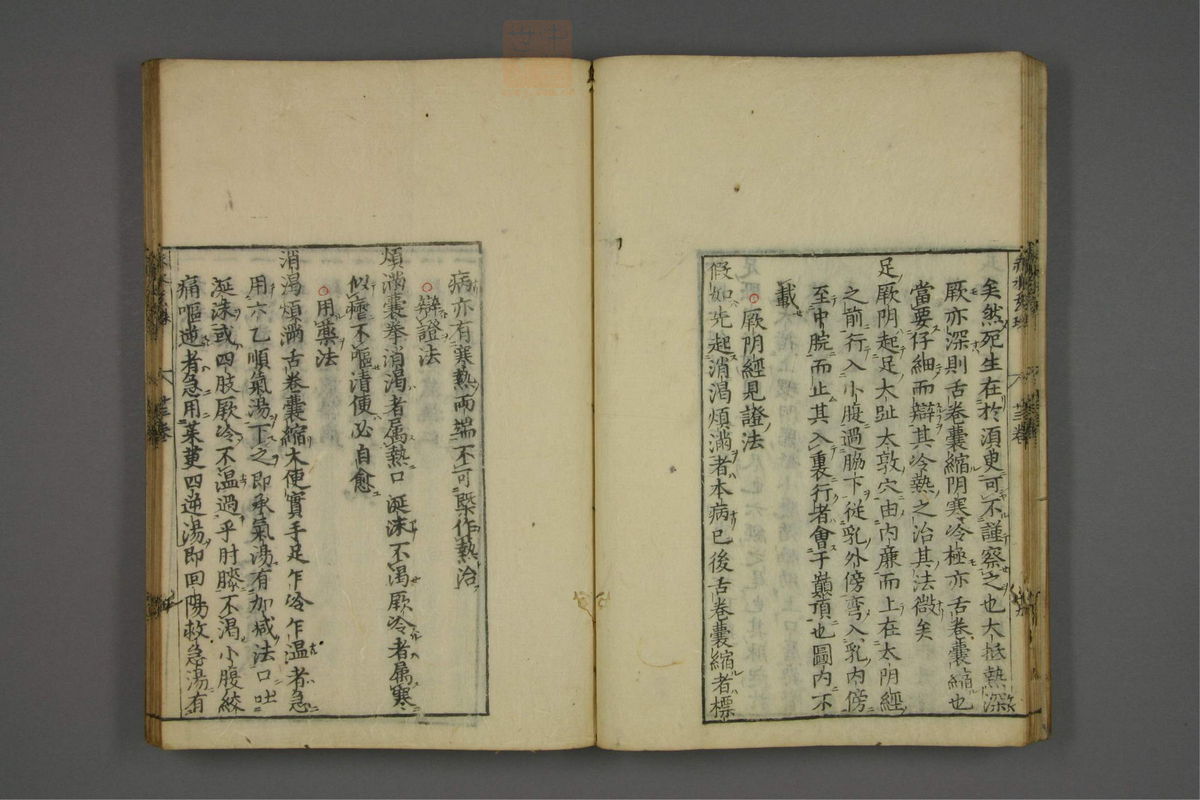 矣然死生在於須臾可不謹察之也大抵熱深
厥亦深則舌卷囊縮阴寒冷極亦舌卷囊縮也
當要仔細而辯其冷熱之治其法微矣
足厥阴起足太趾太敦穴由内廉而上在太阴經
之前行入小腹過脇下従乳外傍弯入乳内傍
至中脘而止其入裏行者會于巔頂也圖内不
載
○厥阴經見證法
假如先起消渴煩滿者本病已後舌卷囊縮者標
病亦有寒熱兩端不可槩作熱治
○辯證法
煩滿囊拳消渴者属熱口涎沫不渴厥冷者属寒
似瘧不嘔清便必自愈
○用藥法
消渴煩滿舌卷囊縮大便實手足乍冷乍温者急
用六乙順氣湯下之即承氣湯有加减法口吐
涎沫或四肢厥冷不温過乎肘膝不渴小腹絞
痛嘔逆者急用茱萸四逆湯即回陽救急湯有